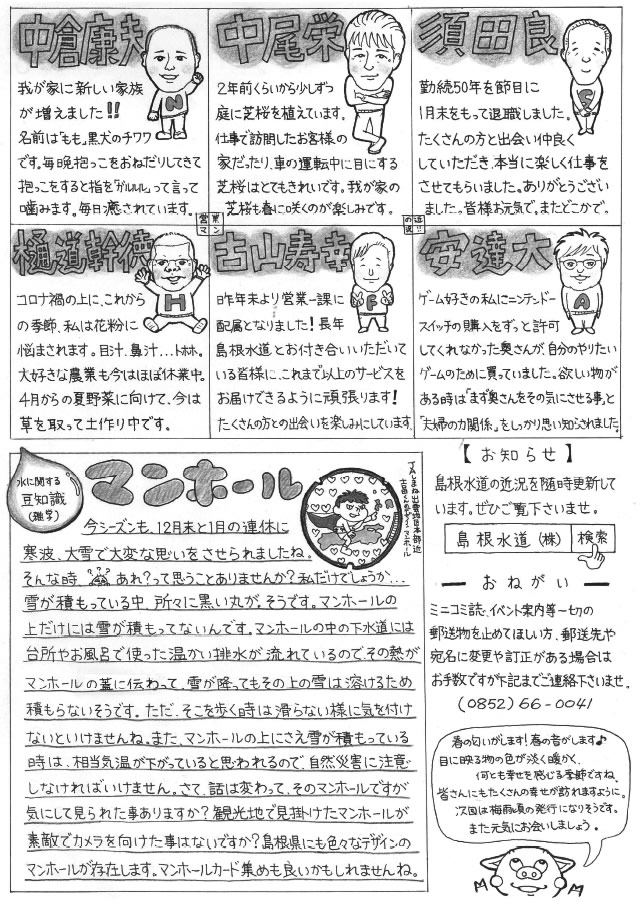 中倉康夫
我が家に新しい家族
が増えました!!
名前は「もも」。黒犬のチワワ
です。毎晩抱っこをおねだりしてきて
抱っこをすると指を「ガルルルル」って言って
噛みます。毎日癒されています。
中尾栄
2年前くらいから少しずつ
庭に芝桜を植えています。
仕事で訪問したお客様の
家だったり、車の運転中に目にする
芝桜はとてもきれいです。我が家の
芝桜も春に咲くのが楽しみです。
須田良
勤続50年を節目に
1月末をもって退職しました。
たくさんの方と出会い仲良く
していただき、本当に楽しく仕事を
させてもらいました。ありがとうござい
ました。皆様お元気で。またどこかで。
営業
マン
の近
況!!
樋道幹徳
コロナ禍の上に、これから
の季節、私は花粉に
悩まされます。目汁、鼻汁…トホホ。
大好きな農業も今はほぼ休業中。
4月からの夏野菜に向けて、今は
草を取って土作り中です。
古山寿幸
昨年末より営業一課に
配属となりました!長年
島根水道とお付き合いいただいて
いる皆様に、これまで以上のサービスを
お届けできるように頑張ります!
たくさんの方との出会いを楽しみにしています。
安達大
ゲーム好きの私にニンテンドー
スイッチの購入をずっと許可
してくれなかった奥さんが、自分のやりたい
ゲームのために買っていました。欲しい物が
ある時は「まず奥さんをその気にさせる事」と
「夫婦の力関係」をしっかり思い知らされました。
水に関する
豆知識
(雑学)
マンホール
今シーズンも、12月末と1月の連休に
寒波、大雪で大変な思いをさせられましたね。
そんな時、あれ?って思うことありませんか?私だけでしょうか...
雪が積もっている中、所々に黒い丸が。そうです。マンホールの
上だけには雪が積もってないんです。マンホールの中の下水道には
台所やお風呂で使った温かい排水が流れているので、その熱が
マンホールの蓋に伝わって、雪が降ってもその上の雪は溶けるため
積もらないそうです。ただ、そこを歩く時は滑らない様に気を付け
ないといけませんね。また、マンホールの上にさえ雪が積もっている
時は、相当気温が下がっていると思われるので、自然災害に注意
しなければいけません。さて、話は変わって、そのマンホールですが
気にして見られた事ありますか?観光地で見掛けたマンホールが
素敵でカメラを向けた事はないですか?島根県にも色々なデザインの
マンホールが存在します。マンホールカード集めも良いかもしれませんね。
【お知らせ】
島根水道の近況を随時更新して
います。ぜひご覧下さいませ。
島根水道(株) 検索
おねがい
ミニコミ誌、イベント案内等一切の
郵送物を止めてほしい方、郵送先や
宛名に変更や訂正がある場合は
お手数ですが下記までご連絡下さいませ。
(0852)66-0041
春の匂いがします!春の音がします♪
目に映る物の色が淡く暖かく、
何とも幸せを感じる季節ですね。
皆さんにもたくさんの幸せが訪れますように。
次回は梅雨頃の発行になりそうです。
また元気にお会いしましょう。